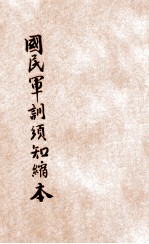 國民軍訓須知縮本